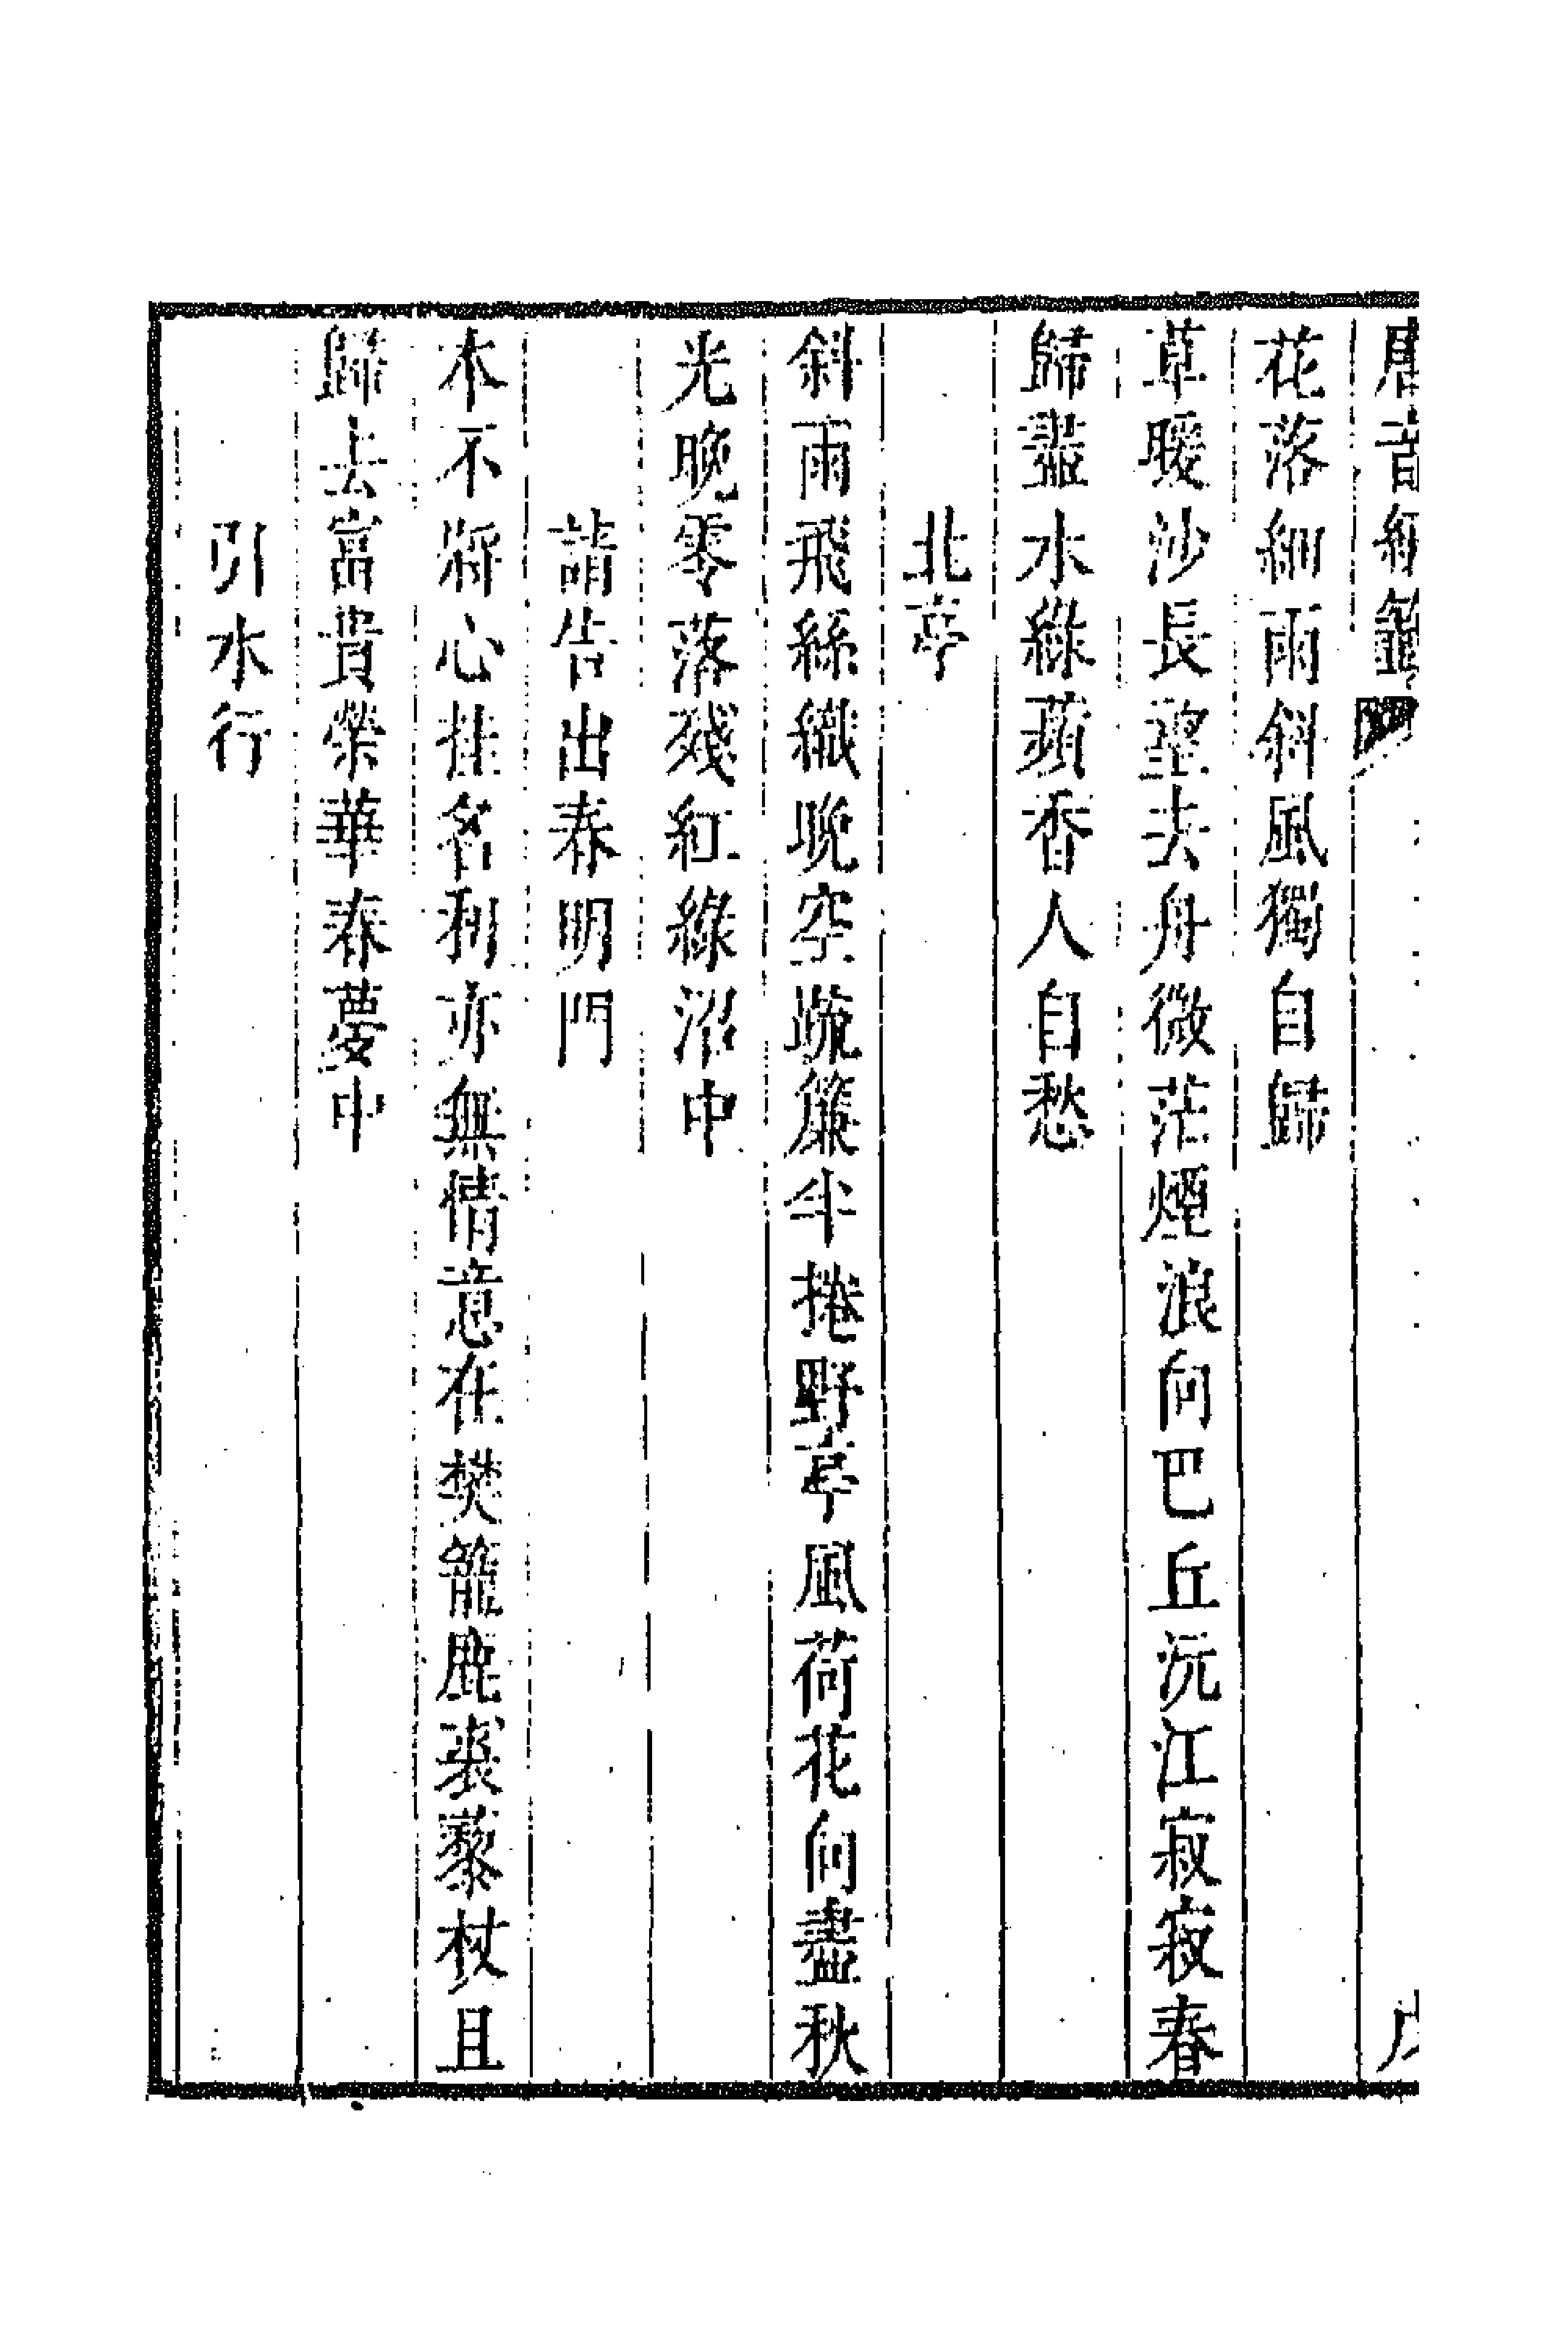 唐音統籤
花落細雨斜風獨自歸
草暖沙長望去舟微茫煙浪向巴丘沅江寂寂春
歸盡水綠蘋香人自愁
北亭
斜雨飛絲織晚空疏簾半捲野亭風荷花向盡秋
光晚零落殘紅綠沼中
請告出春明門
本不將心挂名利亦無情意在樊籠鹿裘藜杖且
歸去富貴榮華春夢中
引水行